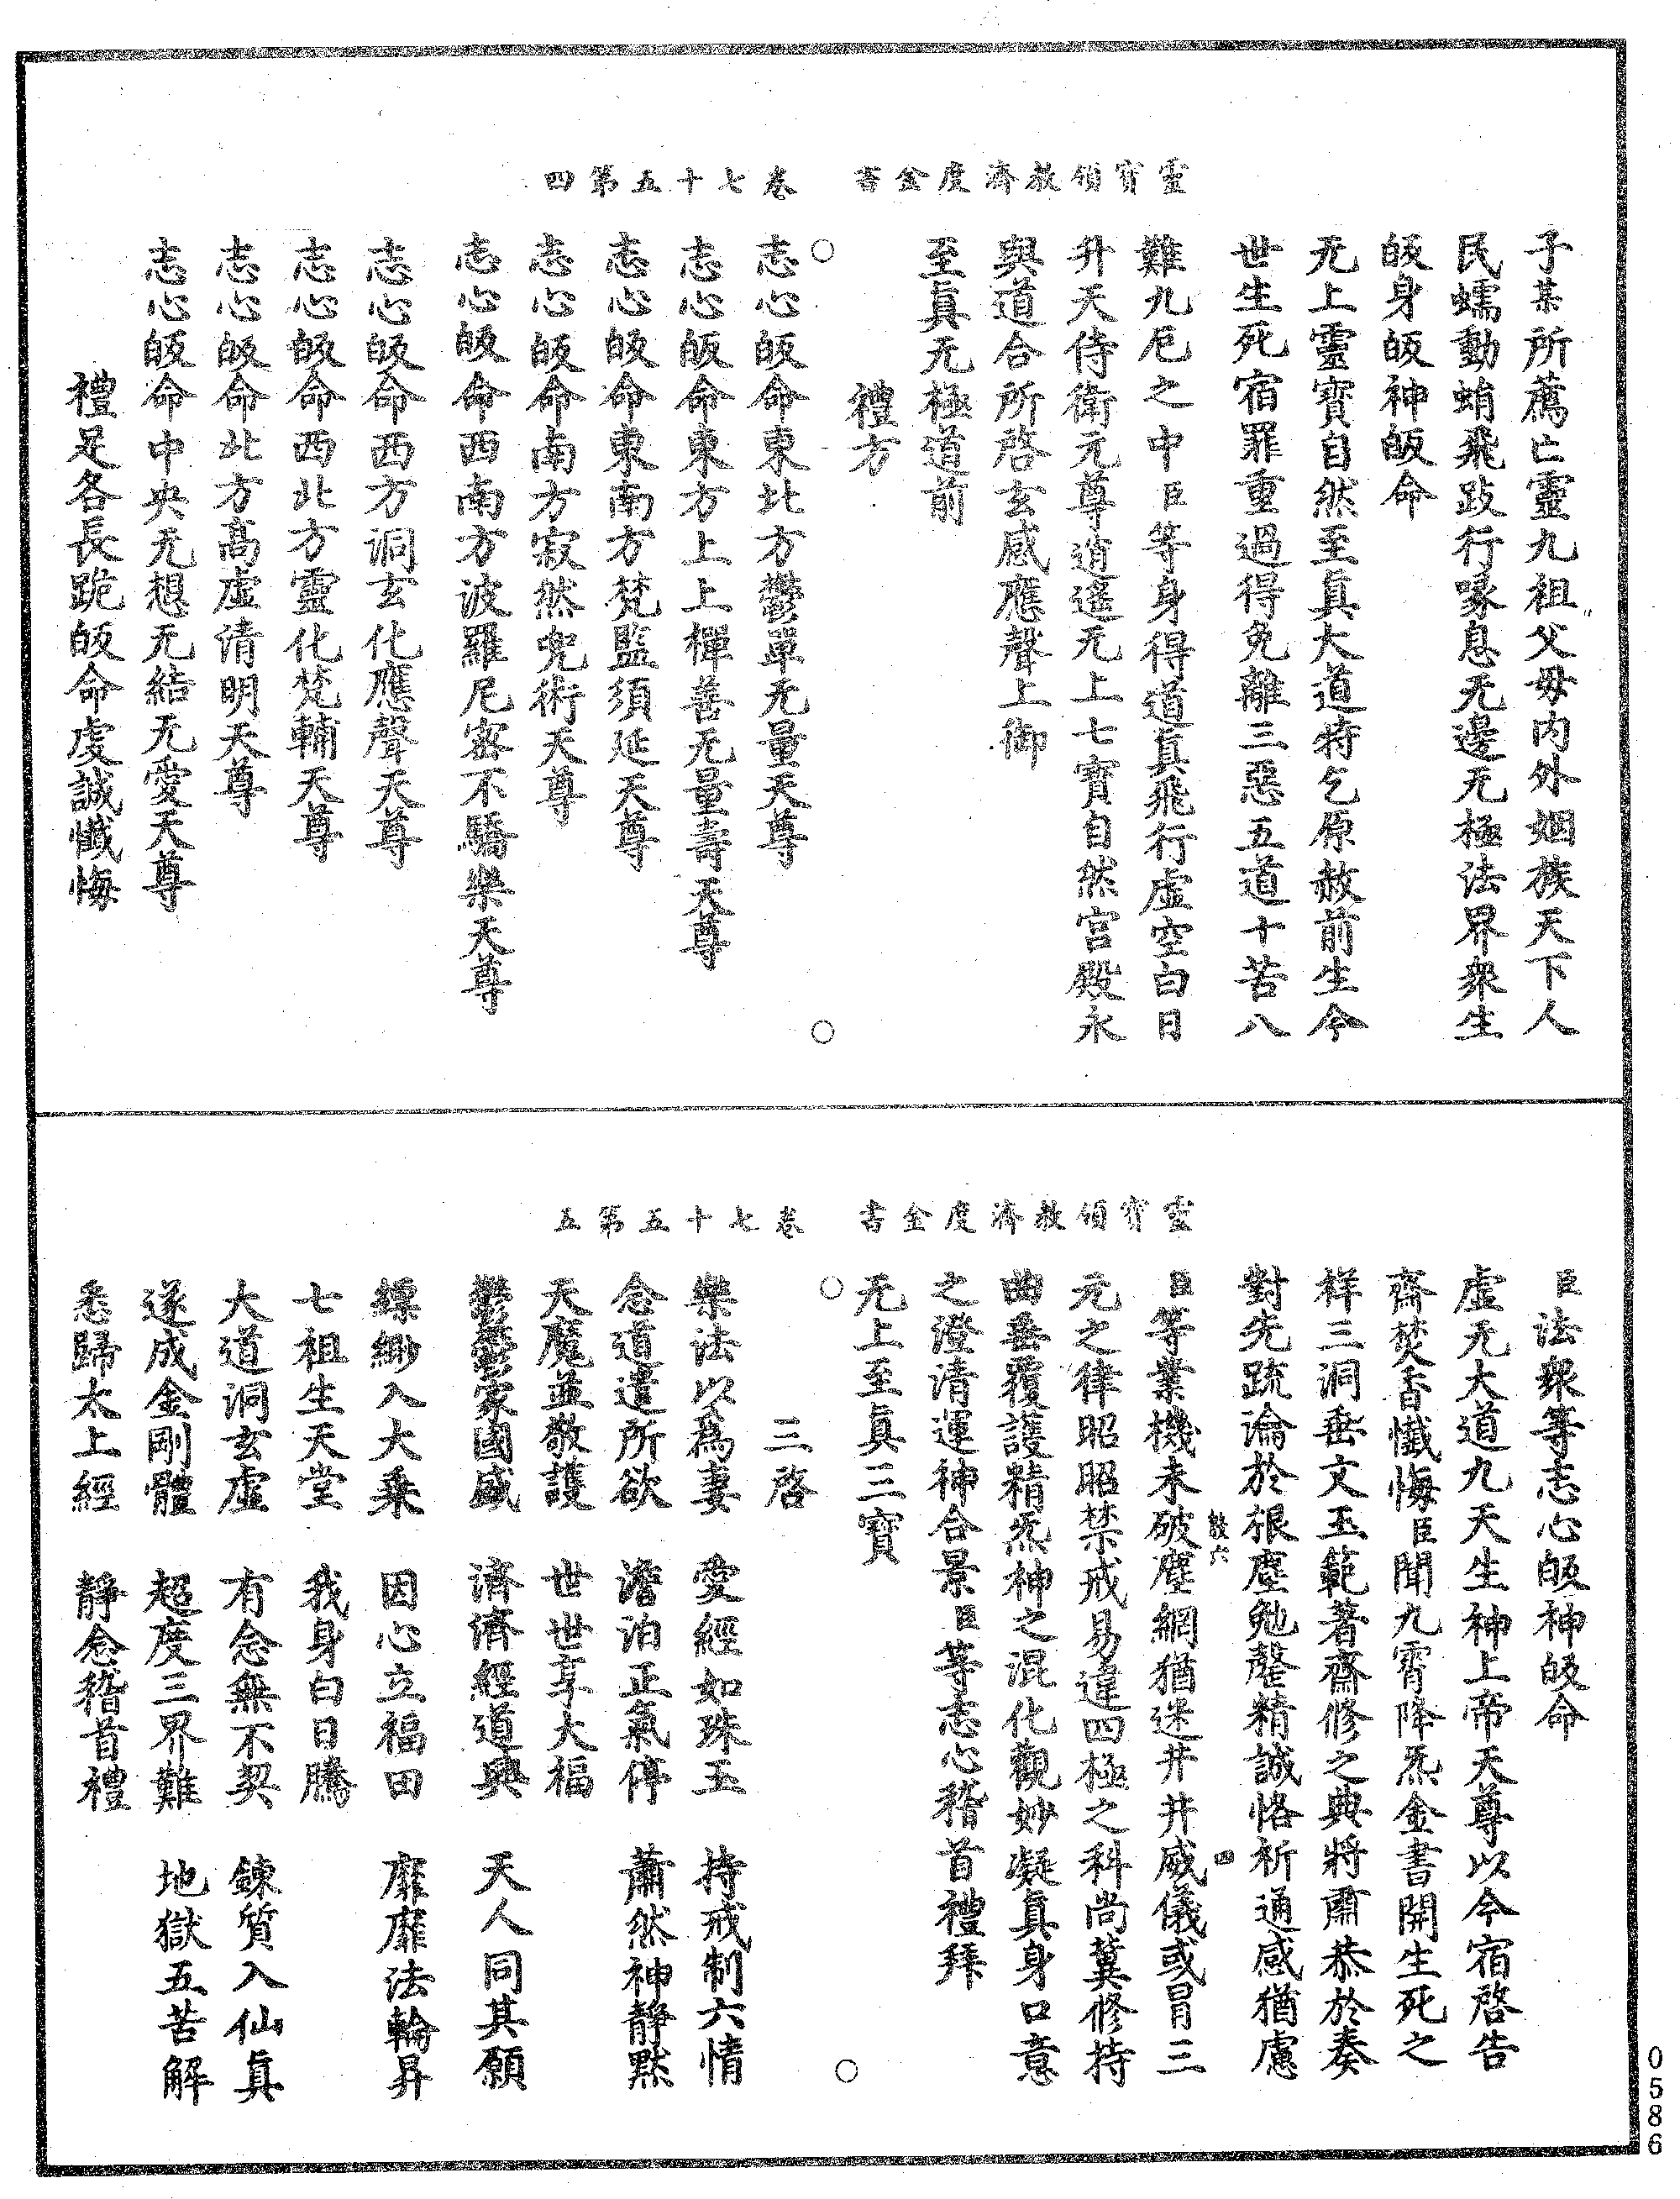 靈寶領教濟度金書　卷七十五第四
子某所薦亡靈九祖父母内外姻族天下人
民蠕動蛸飛跂行喙息无邊无極法界衆生
皈身皈神皈命
无上靈寶自然至真大道特乞原赦前生今
世生死宿罪重過得免離三惡五道十苦八
難九厄之中臣等身得道真飛行虛空白日
升天侍衛元尊逍遙无上七寶自然宫殿永
與道合所啓玄感應聲上御
至真无極道前
禮方
○　○
志心皈命東北方鬱單无量天尊
志心皈命東方上上樿善无量壽天尊
志心皈命東南方梵監須延天尊
志心皈命南方寂然兜術天尊
志心皈命西南方波羅尼宻不驕樂天尊
志心皈命西方洞玄化應聲天尊
志心皈命西北方靈化梵輔天尊
志心皈命北方高虛清明天尊
志心皈命中央无想无結无愛天尊
禮足各長跪皈命虔誠懺悔
靈寶領教濟度金書　卷七十五第五
臣法衆等志心皈神皈命
虛无大道九天生神上帝天尊以今宿啓告
齋焚香懺悔臣聞九霄降炁金書開生死之
祥三洞垂文玉範著齋修之典將肅恭於奏
對先疏瀹於根塵勉罄精誠恪祈通感猶慮
臣等業機未破塵網猶迷井井威儀或冒三
元之律昭昭禁戒易違四極之科尚冀修持
曲垂覆護精炁神之混化觀妙凝真身口意
之澄清運神合景臣等志心稽首禮拜
无上至真三寶
○　○
三啓
樂法以為妻　愛經如珠玉　持戒制六情
念道遣所欲　澹泊正氣停　蕭然神靜黙
天魔並敬護　世世享大福
鬱鬱家國盛　濟濟經道興　天人同其願
縹緲入大乘　因心立福田　靡靡法輪昇
七祖生天堂　我身白日騰
大道洞玄虛　有念無不契　鍊質入仙真
遂成金剛體　超度三界難　地獄五苦解
悉歸太上經　靜念稽首禮
0586